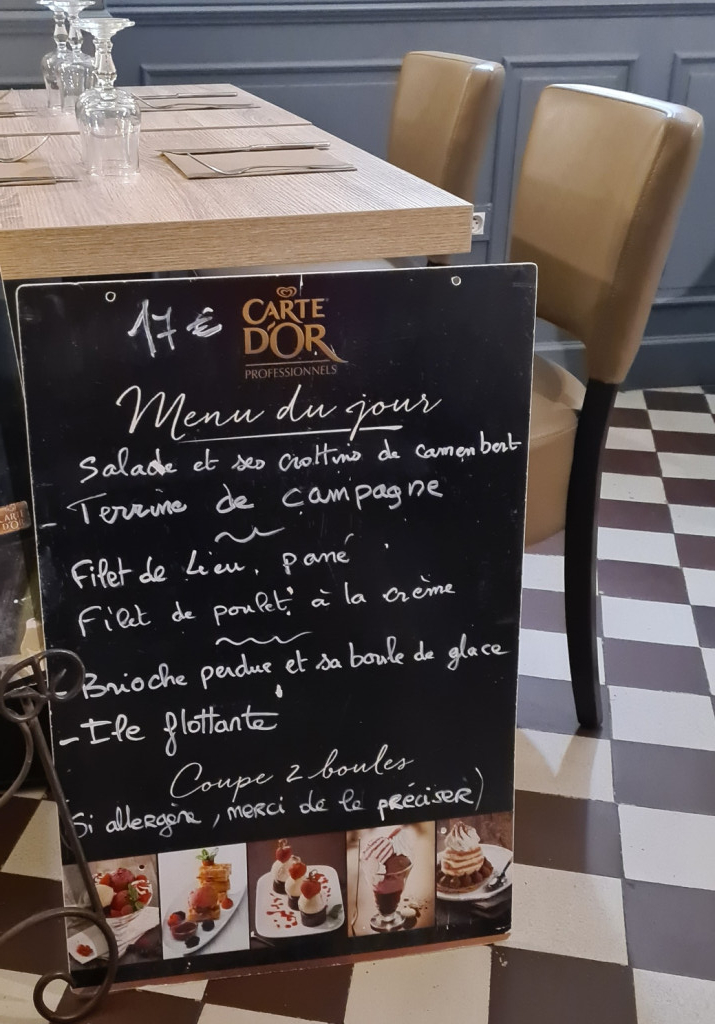 17 €
CARTE
D'OR
PROFESSIONNELS
Menu du jour
Salade et ses crottins de camembert
- Terrine de campagne
Filet de Lieu, pané
Filet de poulet, à la crème
- Brioche perdue et sa boule de glace
- Ile flottante
Coupe 2 boules
(Si allergène, merci de le préciser)